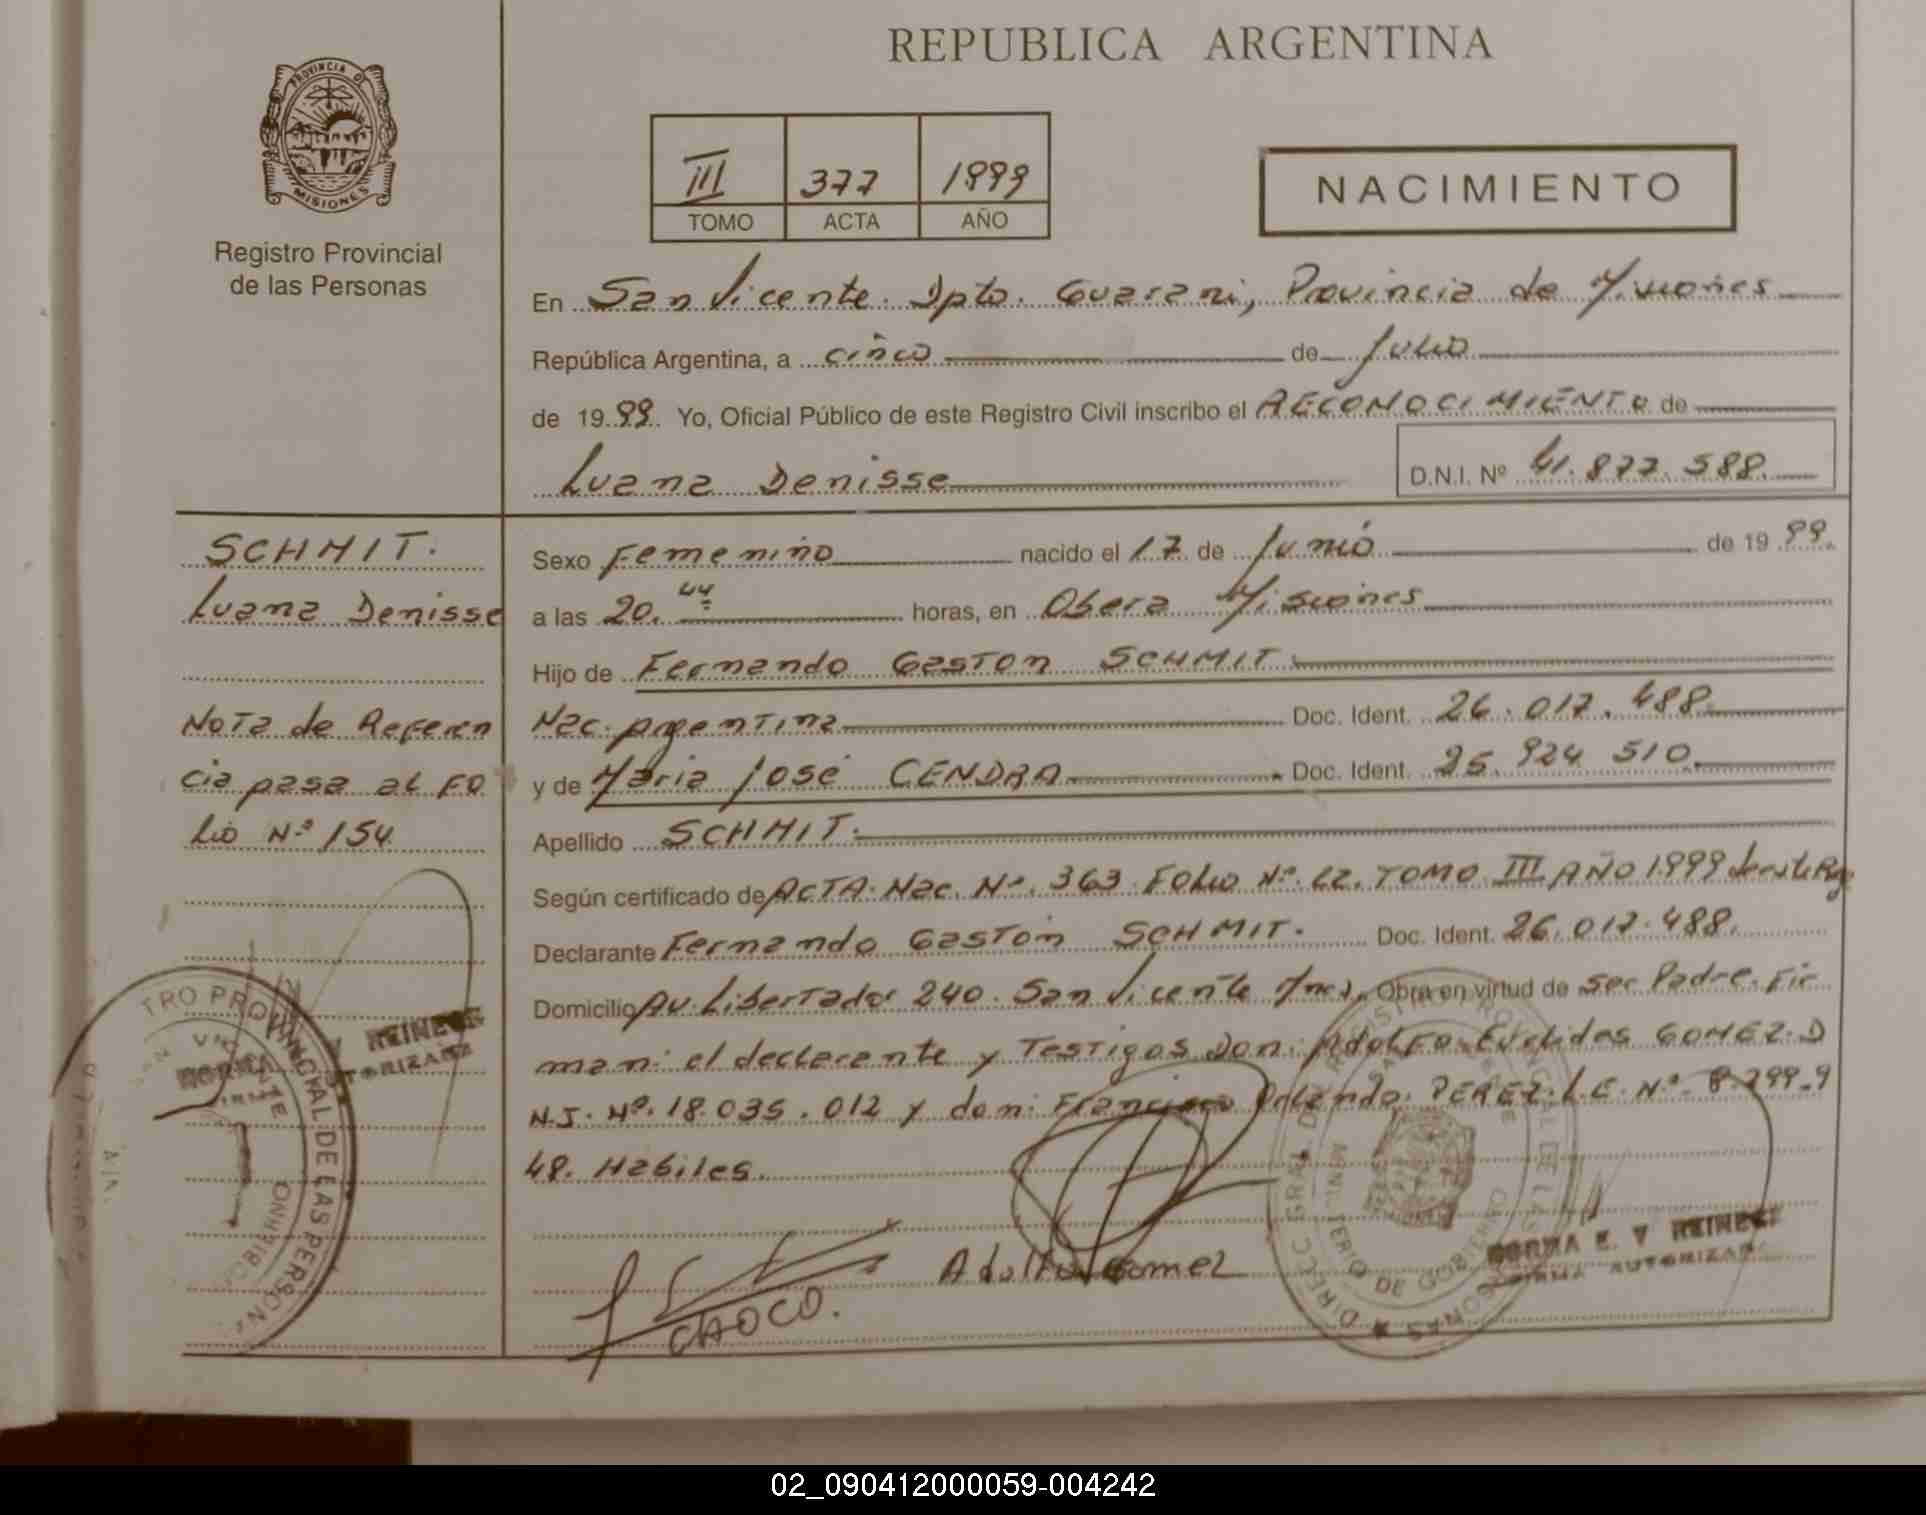 REPUBLICA ARGENTINA
PROVINCIA D
MISIONES
Registro Provincial
de las Personas
III 377 1999
TOMO ACTA AÑO
NACIMIENTO
En San Vicente. Dpto. Guarani, Provincia de Misiones
República Argentina, a cinco de Julio
de 1999. Yo, Oficial Público de este Registro Civil inscribo el RECONOCIMIENTO de
Luana Denisse
D.N.I. Nº 41.877.588.
SCHMIT.
Luana Denisse
Nota de Referen
cia pasa al FO
Lio Nº 154
Sexo Femenino nacido el 17 de Junio de 1999.
a las 20.44 horas, en Obera Misiones
Hijo de Fernando Gaston SCHMIT.
Nac. Argentina Doc. Ident. 26.017.488.
y de Maria José CENDRA Doc. Ident. 25.924 510.
Apellido SCHMIT.
Según certificado de ACTA. Nac. Nº. 363. Folio Nº. TOMO III AÑO 1999
Declarante Fernando Gaston SCHMIT. Doc. Ident. 26.017.488.
Domicilio Av. Libertador 240. San Vicente Mnes. Obra en virtud de ser Padre. Fir
man: el declarante y Testigos Don: Adolfo Euclides GOMEZ. D
N.I. Nº. 18.035.012 y don: Francisco Orlando PEREZ. L.E. Nº. 8.299.9
48. Habiles.
Adolfo Gomez
TRO PROVINCIAL DE LAS PERSONAS
NORMA E. V REINECK
FIRMA AUTORIZADA
DIRECC GRAL DE REGISTRO PROVINCIAL DE LAS PERSONAS
MINISTERIO DE GOBIERNO
02_090412000059-004242